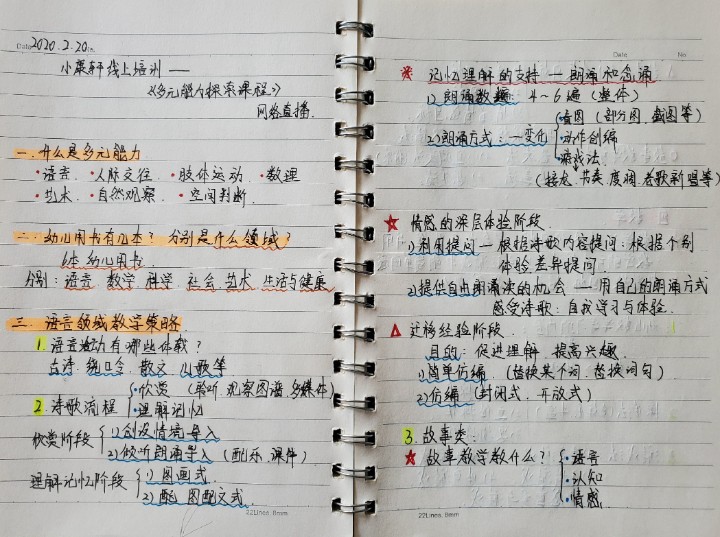 Date 2020.2.20th.
小康轩线上培训 ——
《多元能力探索课程》
网络直播.
一. 什么是多元能力
·语言. ·人际交位. ·肢体运动. ·数理
·艺术. ·自然观察. ·空间判断.
二. 幼儿用书有几本? 分别是什么领域?
6本幼儿用书.
分别: 语言. 数学. 科学. 社会. 艺术. 生活与健康
三. 语言领域教学策略.
1. 语言活动有哪些体裁?
古诗. 绕口令. 散文. 儿歌等
2. 诗歌流程
·欣赏 (聆听. 观察图谱. 多媒体)
·理解记忆
欣赏阶段
1) 创设情境导入
2) 倾听朗诵导入 (配乐. 课件)
理解记忆阶段
1) 图画式.
2) 配图配文式.
22Lines. 8mm
Date No
※ 记忆理解的支持 — 朗诵和念诵
1) 朗诵数遍: 4~6遍 (整体)
2) 朗诵方式: 一变化
·看图 (部分图. 截图等)
·动作创编
·游戏法
(接龙. 节奏. 度调. 老歌新唱等)
★ 情感的深层体验阶段.
1) 利用提问 — 根据诗歌内容提问: 根据个别
体验差异提问.
2) 提供自由朗诵读的机会 — 用自己的朗诵方式
感受诗歌: 自我学习与体验.
△ 迁移经验阶段.
目的: 促进理解. 提高兴趣.
1) 简单仿编. (替换某个词. 替换词句)
2) 仿编 (封闭式. 开放式)
3. 故事类:
★ 故事教学教什么?
·语言
·认知
·情感.
22Lines. 8mm